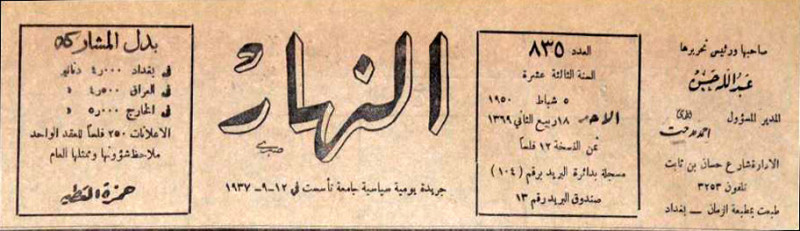 صاحبها ورئيس تحريرها
عبدالله حسن
المدير المسؤول
احمد مدحت
الادارة شارع حسان بن ثابت
تلفون ٣٢٥٣
طبعت بمطبعة الزمان - بغداد
العدد ٨٣٥
السنة الثالثة عشرة
٥ شباط ١٩٥٠
الاحد ١٨ ربيع الثاني ١٣٦٩
ثمن النسخة ١٢ فلساً
مسجلة بدائرة البريد برقم (١٠٤)
صندوق البريد رقم ١٣
النهار
صبري
جريدة يومية سياسية جامعة تأسست في ١٢-٩-١٩٣٧
بدل المشاركة
في بغداد ٤٫٠٠٠ دنانير
في العراق ٤٫٥٠٠ »
في الخارج ٥٫٠٠٠ »
الاعلانات ٢٥٠ فلساً للعقد الواحد
ملاحظ شؤونها وممثلها العام
حمزة